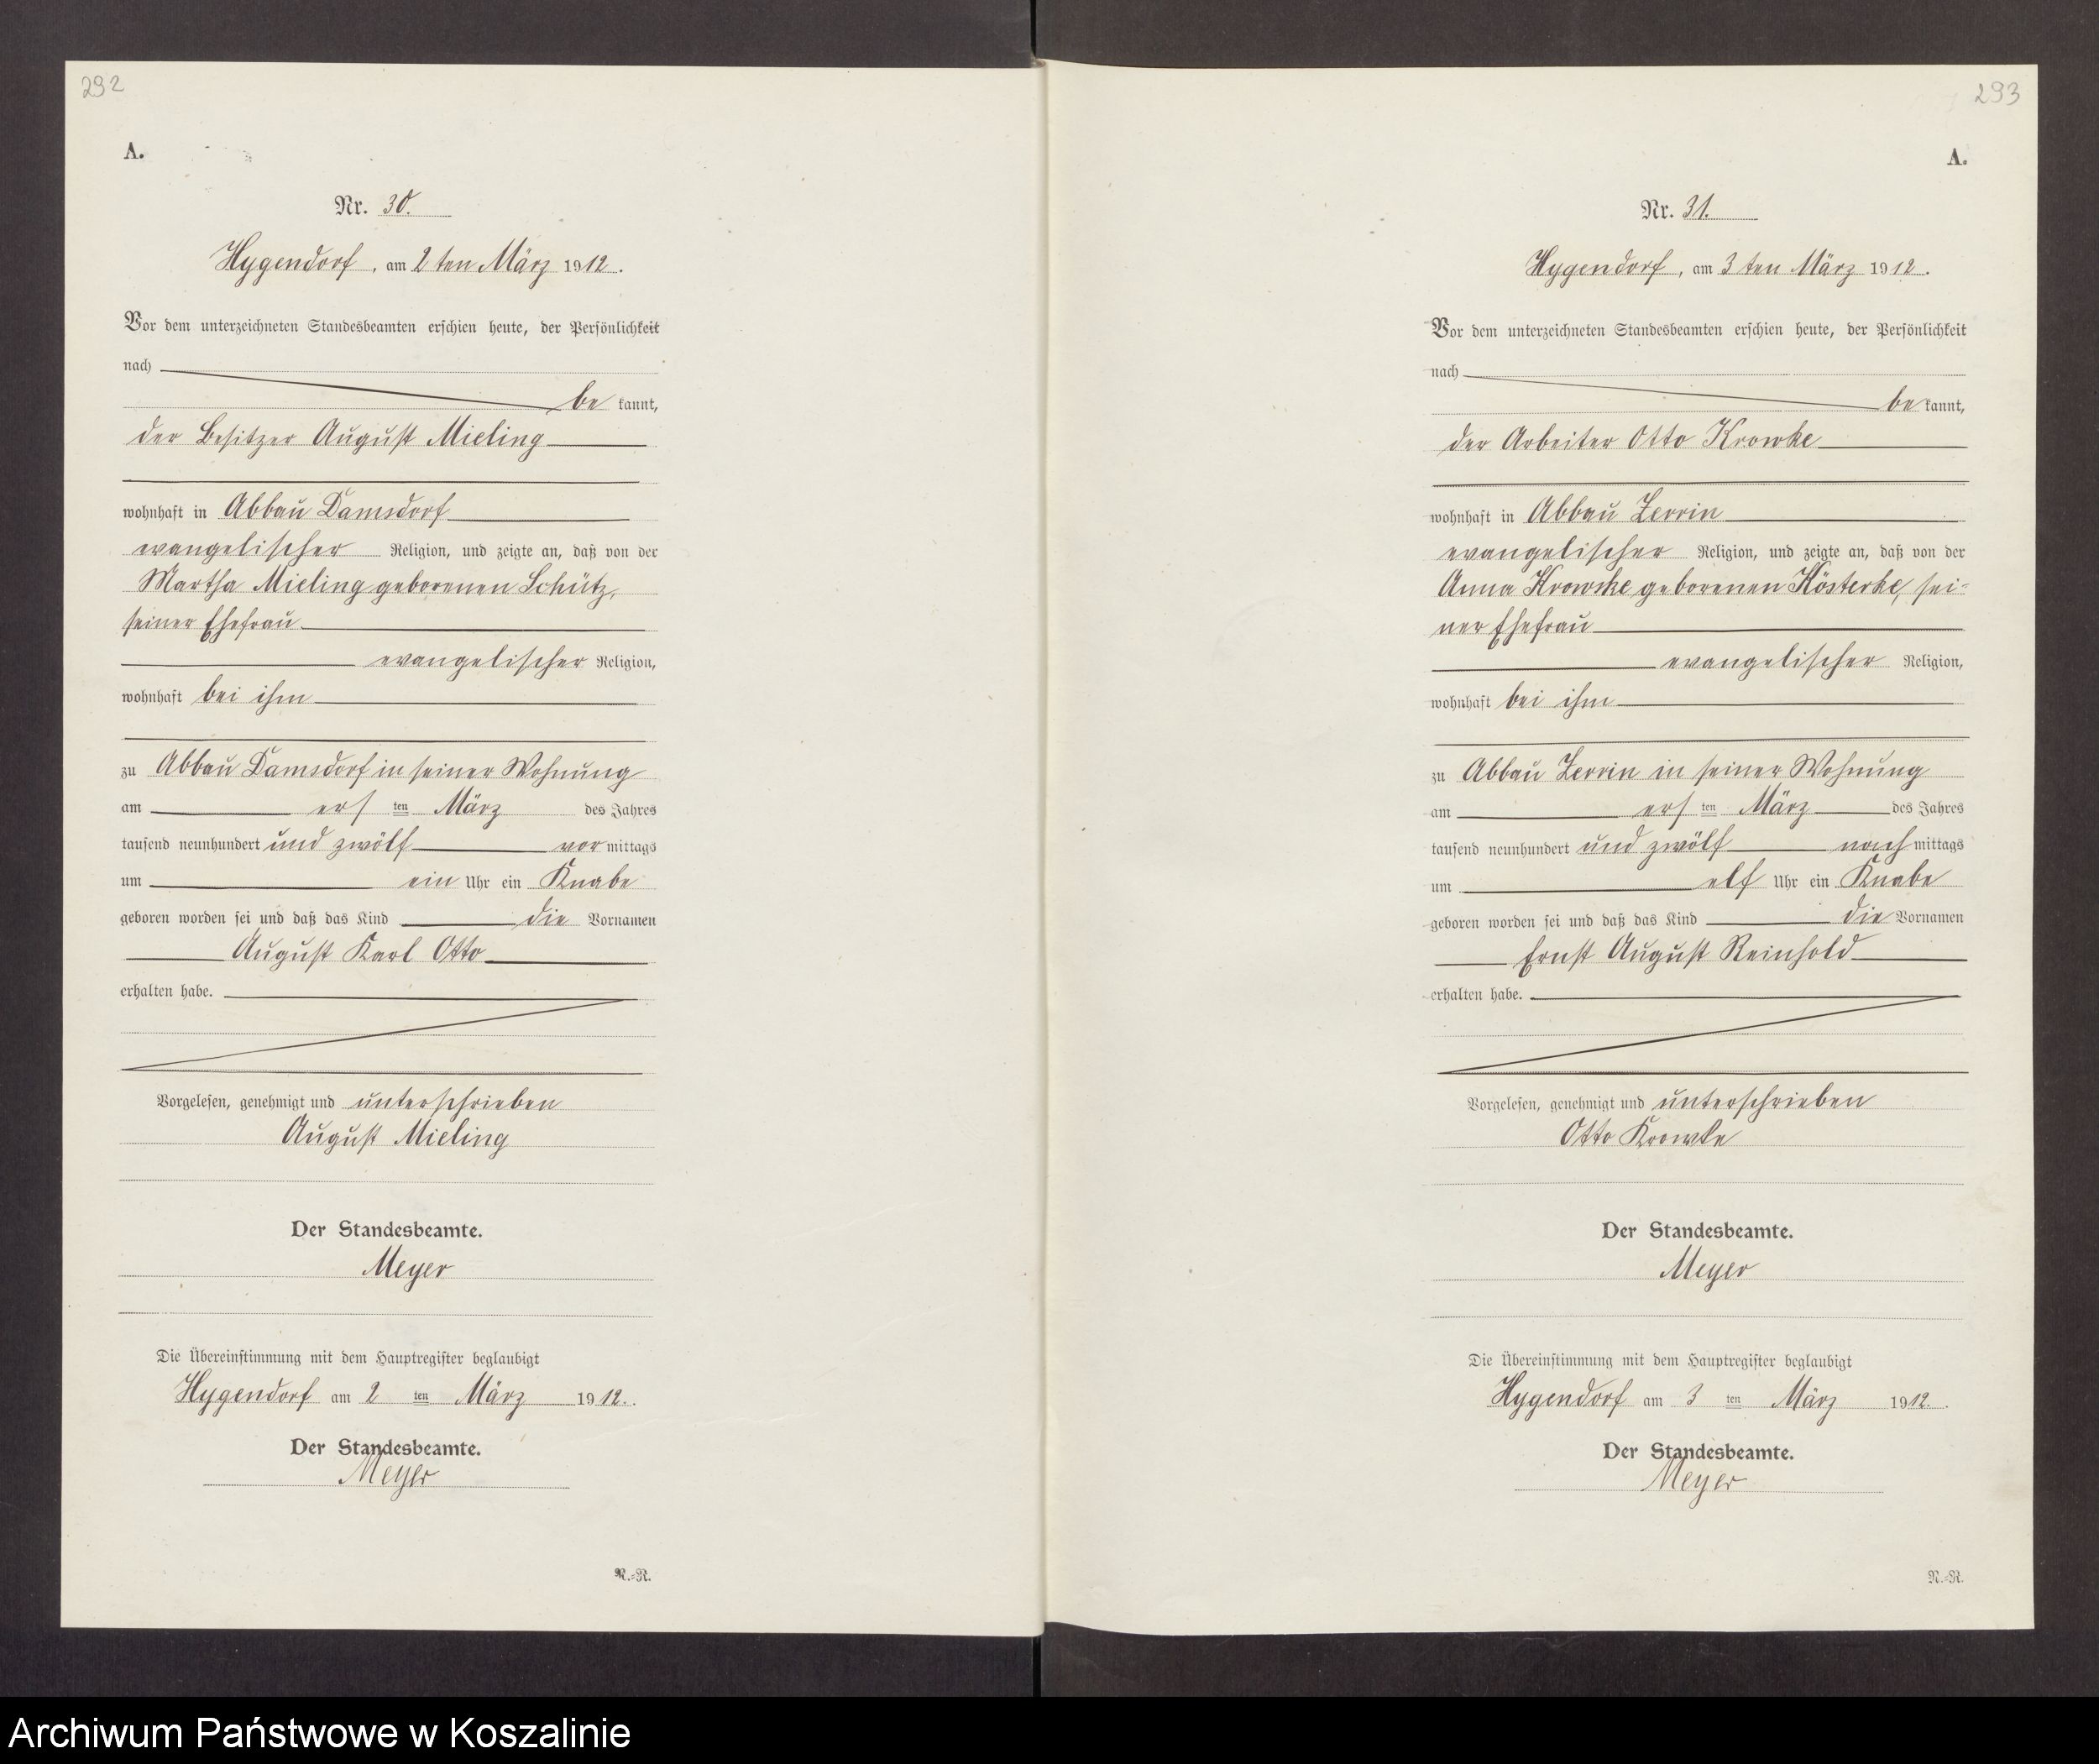 292
A.
Nr. 30.
Hygendorf, am 2 ten März 1912.
Vor dem unterzeichneten Standesbeamten erschien heute, der Persönlichkeit
nach
be kannt,
der Besitzer August Mieling
wohnhaft in Abbau Damsdorf
evangelischer Religion, und zeigte an, daß von der
Martha Mieling geborenen Schütz,
seiner Ehefrau
evangelischer Religion,
wohnhaft bei ihm
zu Abbau Damsdorf in seiner Wohnung
am ers ten März des Jahres
tausend neunhundert und zwölf vor mittags
um ein Uhr ein Knabe
geboren worden sei und daß das Kind die Vornamen
August Karl Otto
erhalten habe.
Vorgelesen, genehmigt und unterschrieben
August Mieling
Der Standesbeamte.
Meyer
Die Übereinstimmung mit dem Hauptregister beglaubigt
Hygendorf am 2 ten März 1912.
Der Standesbeamte.
Meyer
N.-R.
293
A.
Nr. 31.
Hygendorf, am 3 ten März 1912.
Vor dem unterzeichneten Standesbeamten erschien heute, der Persönlichkeit
nach
be kannt,
der Arbeiter Otto Krowke
wohnhaft in Abbau Zerrin
evangelischer Religion, und zeigte an, daß von der
Anna Krowke geborenen Kösterke, sei-
ner Ehefrau
evangelischer Religion,
wohnhaft bei ihm
zu Abbau Zerrin in seiner Wohnung
am ers ten März des Jahres
tausend neunhundert und zwölf nach mittags
um elf Uhr ein Knabe
geboren worden sei und daß das Kind die Vornamen
Ernst August Reinhold
erhalten habe.
Vorgelesen, genehmigt und unterschrieben
Otto Krowke
Der Standesbeamte.
Meyer
Die Übereinstimmung mit dem Hauptregister beglaubigt
Hygendorf am 3 ten März 1912.
Der Standesbeamte.
Meyer
N.-R.
Archiwum Państwowe w Koszalinie